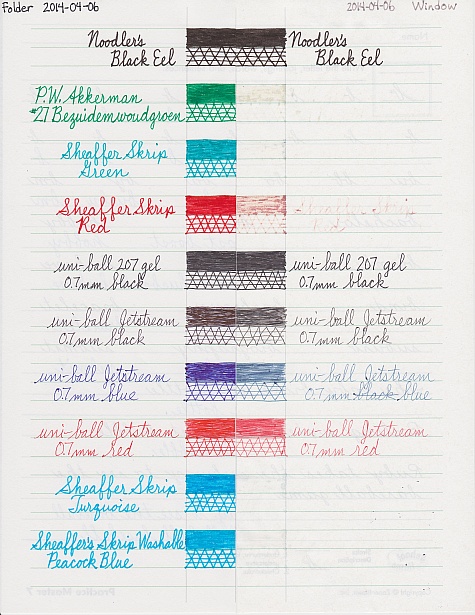 Folder 2014-04-06 2014-04-06 Window
Noodler's Noodler's
Black Eel Black Eel
P.W. Akkerman
#27 Bezuidenwoudgroen
Sheaffer Skrip
Green
Sheaffer Skrip Sheaffer Skrip
Red Red
uni-ball 207 gel uni-ball 207 gel
0.7mm black 0.7mm black
uni-ball Jetstream uni-ball Jetstream
0.7mm black 0.7mm black
uni-ball Jetstream uni-ball Jetstream
0.7mm blue 0.7mm black blue
uni-ball Jetstream uni-ball Jetstream
0.7mm red 0.7mm red
Sheaffer Skrip
Turquoise
Sheaffer's Skrip Washable
Peacock Blue